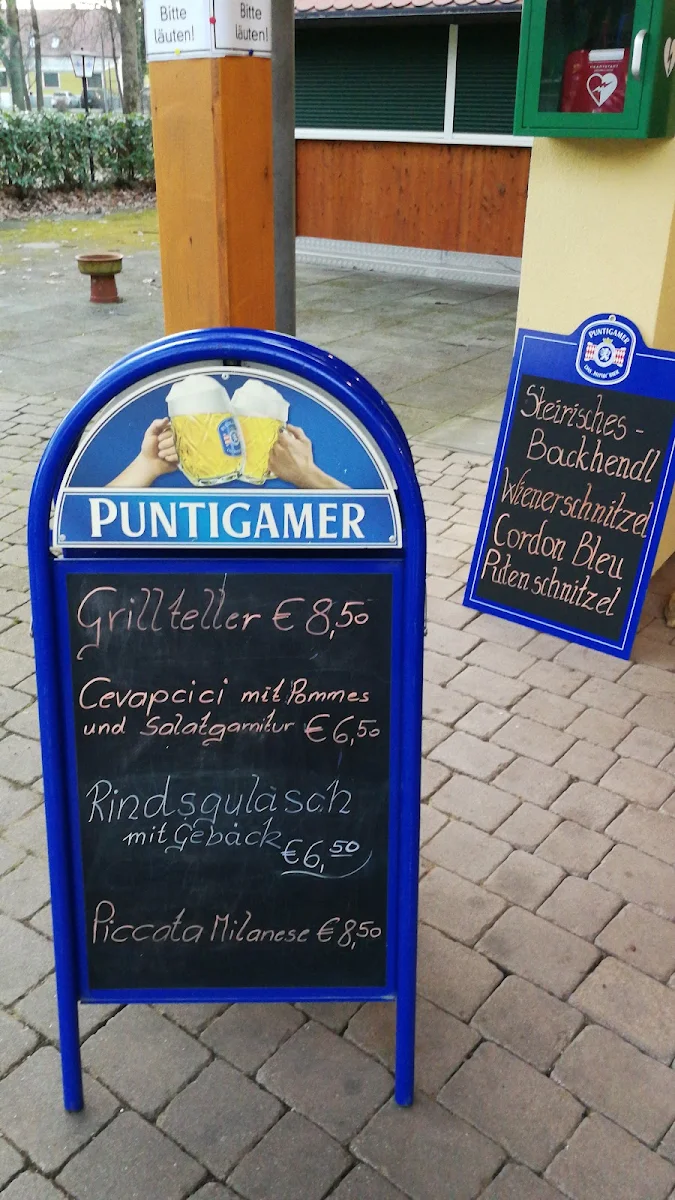 Bitte
läuten!
Bitte
läuten!
PUNTIGAMER
Grillteller € 8,50
Cevapcici mit Pommes
und Salatgarnitur € 6,50
Rindsgulasch
mit Gebäck
€ 6,50
Piccata Milanese € 8,50
PUNTIGAMER
Steirisches-
Backhendl
Wienerschnitzel
Cordon Bleu
Putenschnitzel